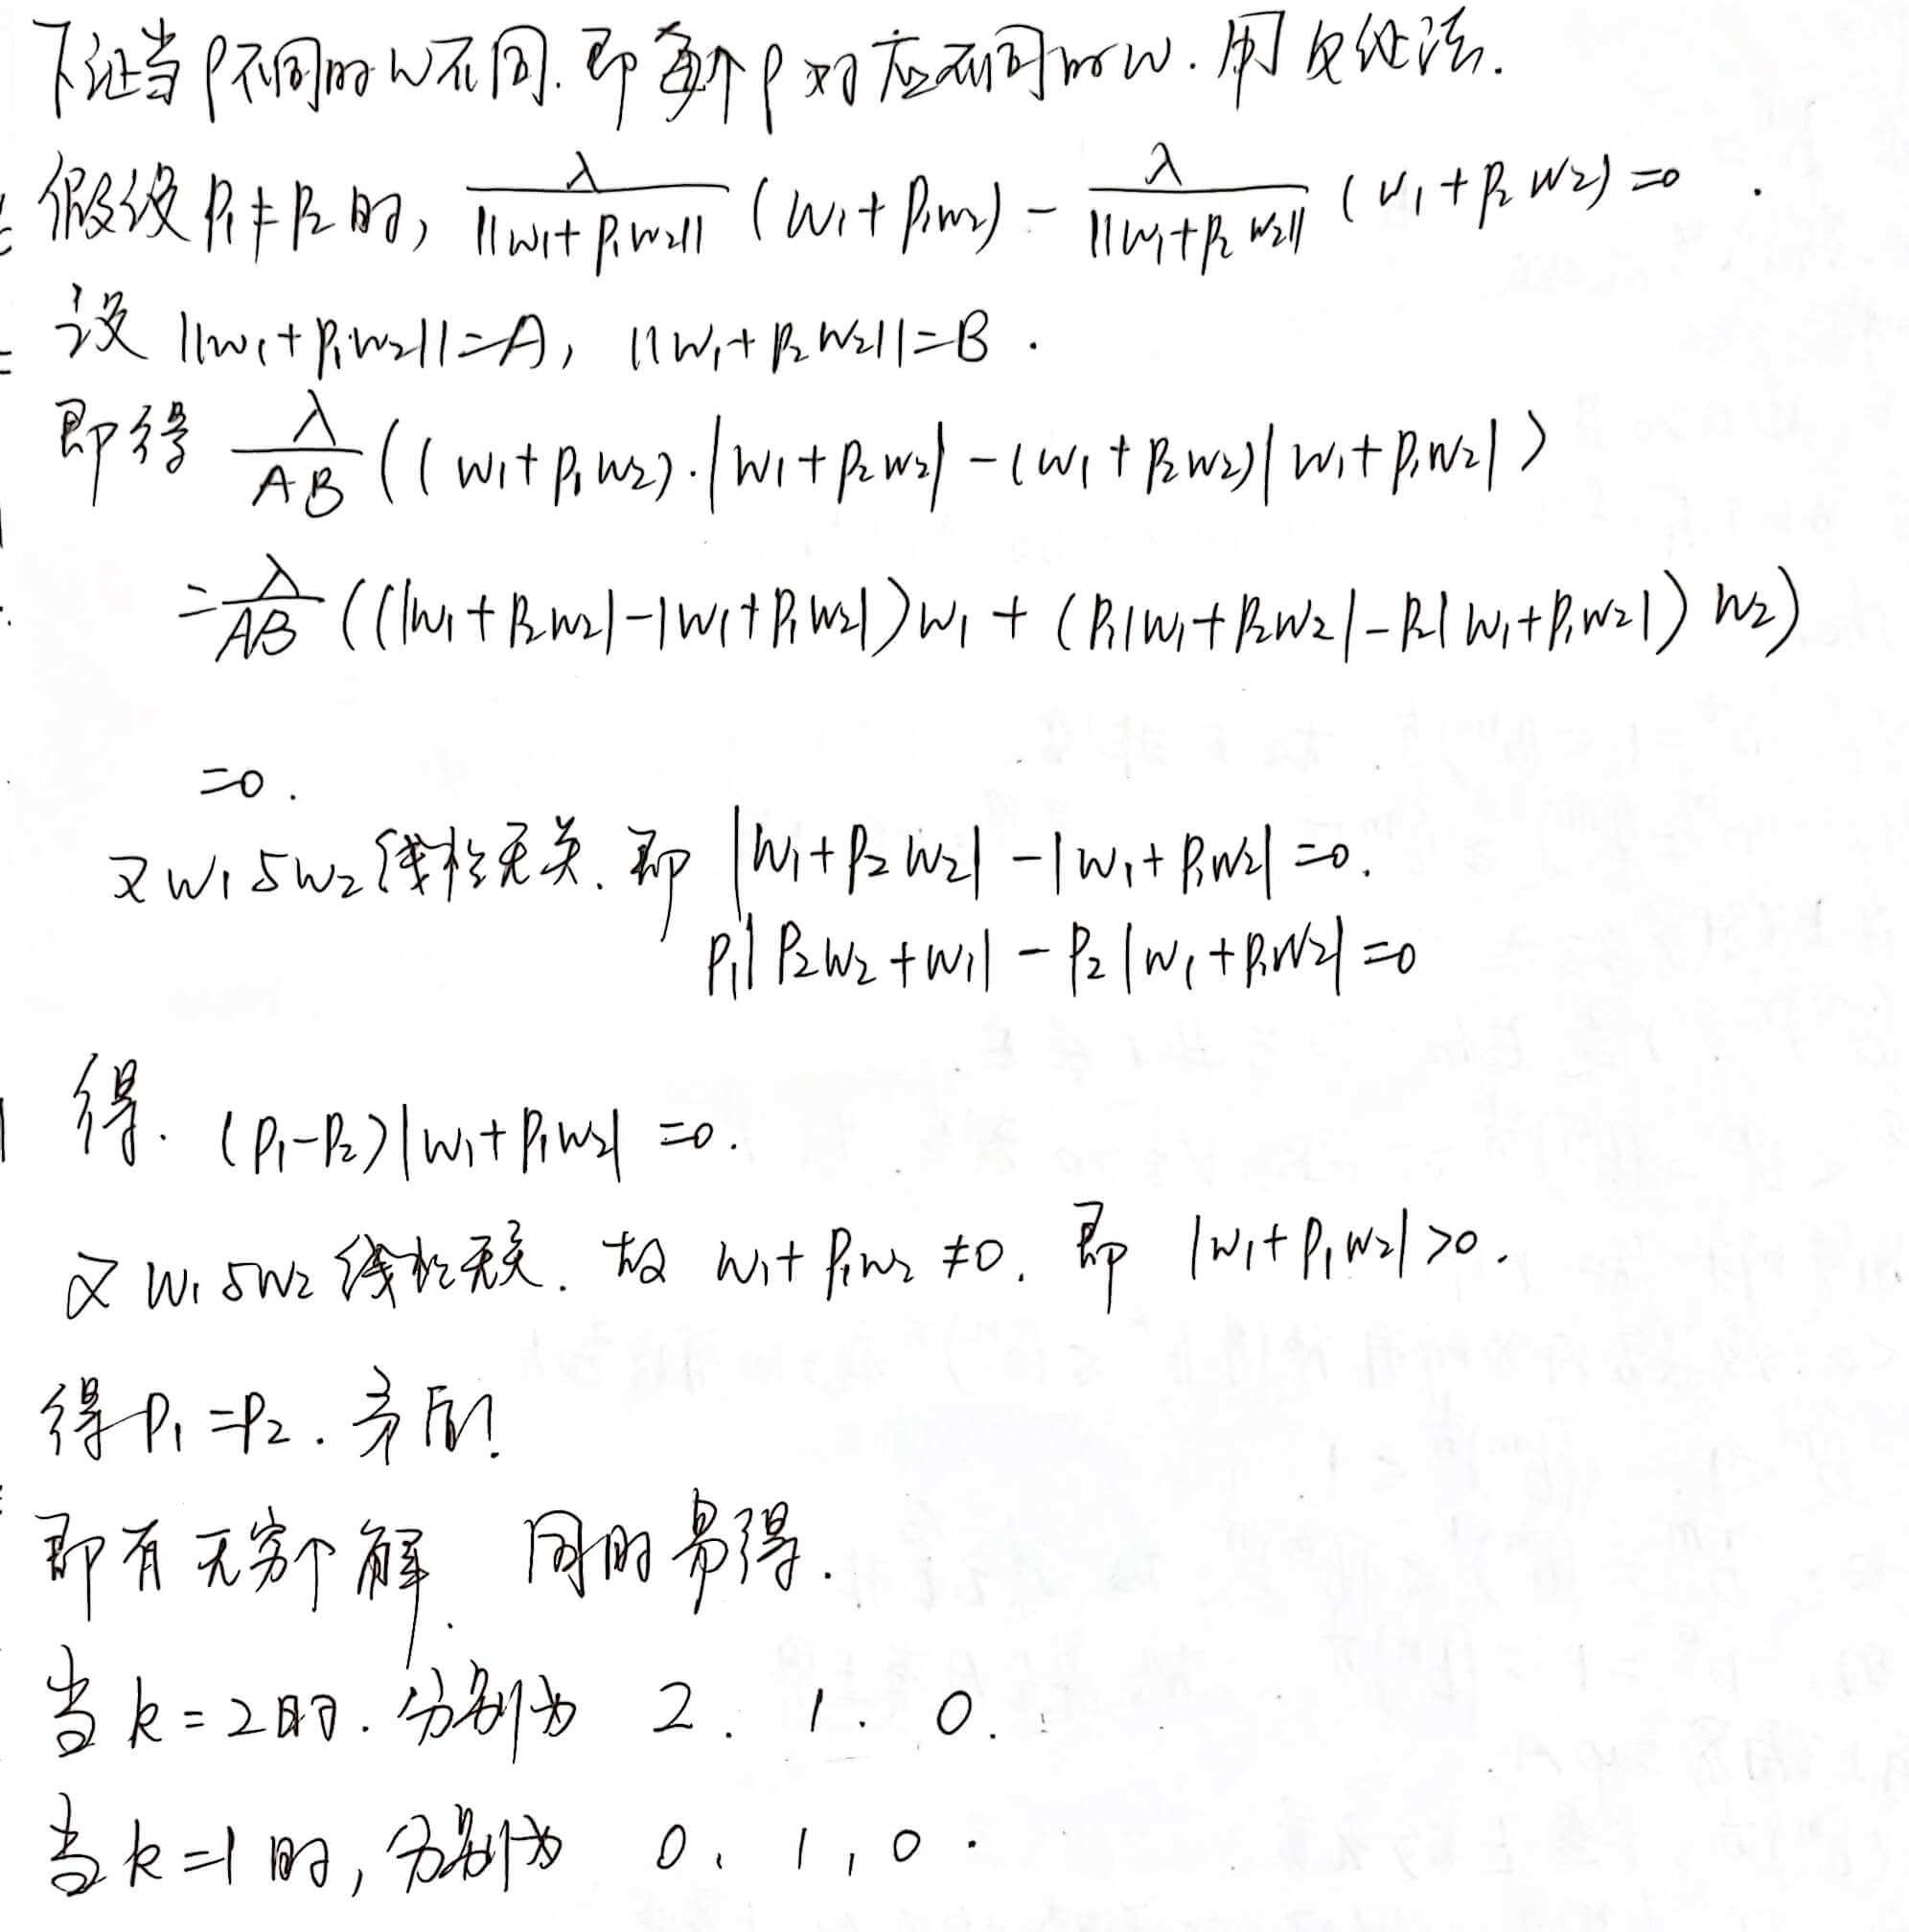 下证当ρ不同时w不同.即每个ρ对应不同的w.用反证法.
假设ρ₁≠ρ₂时, λ/||w₁+ρ₁w₂|| (w₁+ρ₁w₂) - λ/||w₁+ρ₂w₂|| (w₁+ρ₂w₂)=0 .
设 ||w₁+ρ₁w₂||=A, ||w₁+ρ₂w₂||=B .
即得 λ/AB ((w₁+ρ₁w₂)·|w₁+ρ₂w₂| -(w₁+ρ₂w₂)|w₁+ρ₁w₂|)
=λ/AB ((|w₁+ρ₂w₂|-|w₁+ρ₁w₂|)w₁ + (ρ₁|w₁+ρ₂w₂|-ρ₂|w₁+ρ₁w₂|)w₂)
=0.
又w₁与w₂线性无关.即 |w₁+ρ₂w₂| -|w₁+ρ₁w₂|=0.
ρ₁|ρ₂w₂+w₁| -ρ₂|w₁+ρ₁w₂|=0
得. (ρ₁-ρ₂)|w₁+ρ₁w₂| =0.
又w₁与w₂线性无关. 故 w₁+ρ₁w₂≠0. 即 |w₁+ρ₁w₂|>0.
得ρ₁=ρ₂.矛盾!
即有无穷个解. 同时易得.
当k=2时.分别为 2. 1. 0.
当k=1时,分别为 0、1,0.